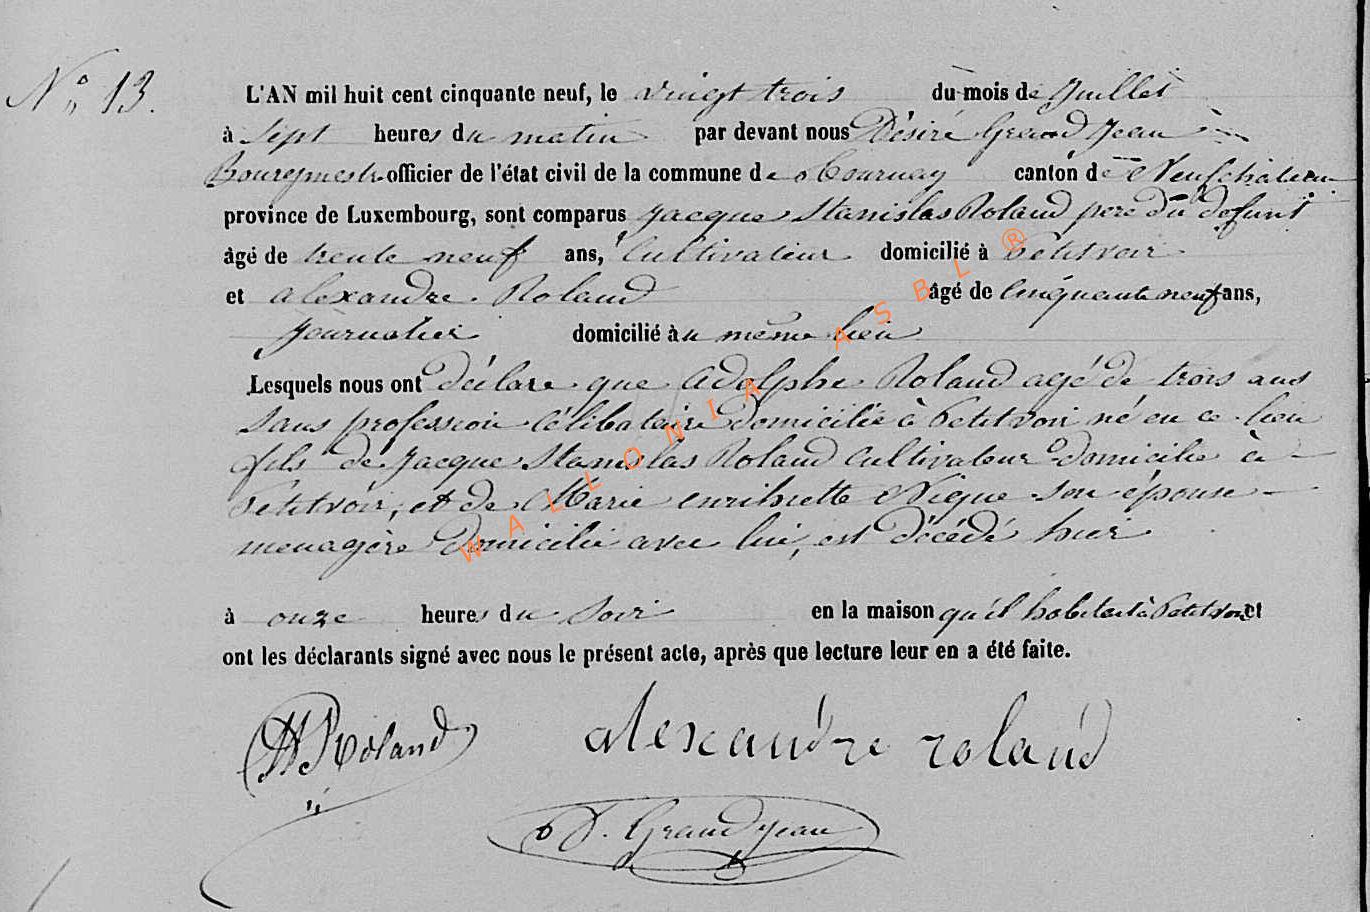 N° 13.
L'AN mil huit cent cinquante neuf, le vingt trois du mois de Juillet
à Sept heures du matin par devant nous Désiré Grand Jean
Bourgmestre officier de l'état civil de la commune de Tournay canton de Neufchateau
province de Luxembourg, sont comparus Jacque Stanislas Roland pere du defunt
âgé de trente neuf ans, Cultivateur domicilié à Petitvoir
et alexandre Roland âgé de Cinquante neuf ans,
Journalier domicilié au même lieu
Lesquels nous ont déclare que Adolphe Roland agé de trois ans
Sans profession Célibataire domicilié à Petitvoir né en ce lieu
fils de Jacque Stanislas Roland Cultivateur domicilié à
Petitvoir, et de Marie enrihette Nique son épouse
menagère domicilié avec lui, est décédé hier
à onze heures du Soir en la maison qu'il habitait à Petitvoir et
ont les déclarants signé avec nous le présent acte, après que lecture leur en a été faite.
Roland alexandre roland
D. Grandjean
WALLONIA ASBL ®